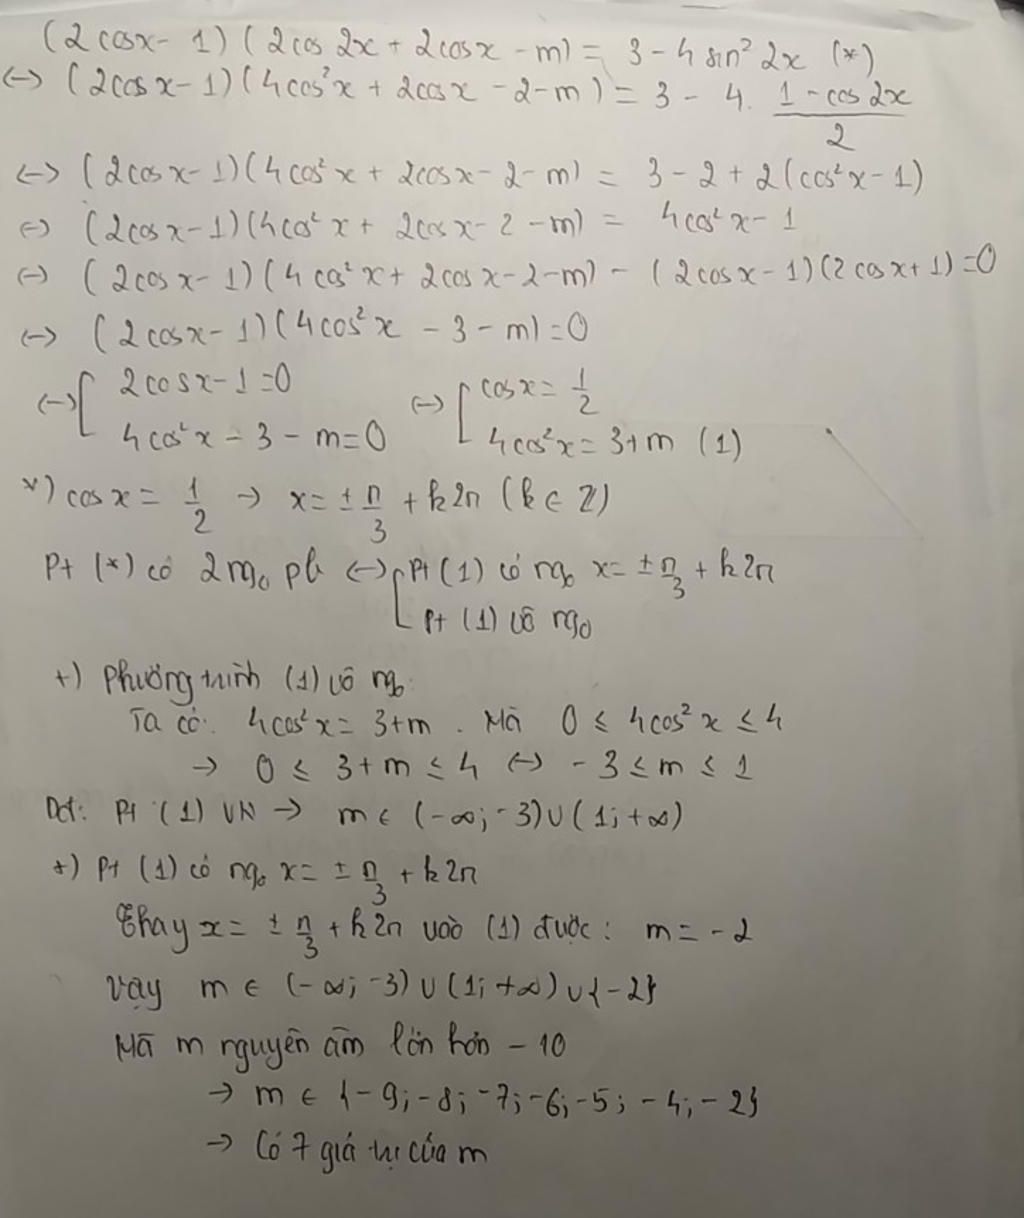 (2cosx - 1)(2cos 2x + 2cosx - m) = 3 - 4 sin² 2x (*)
<-> (2cosx - 1)(4cos²x + 2cosx - 2 - m) = 3 - 4. (1 - cos 2x)/2
<-> (2cosx - 1)(4cos²x + 2cosx - 2 - m) = 3 - 2 + 2(cos²x - 1)
<-> (2cosx - 1)(4cos²x + 2cosx - 2 - m) = 4cos²x - 1
<-> (2cosx - 1)(4cos²x + 2cosx - 2 - m) - (2cosx - 1)(2cosx + 1) = 0
<-> (2cosx - 1)(4cos²x - 3 - m) = 0
<-> [ 2cosx - 1 = 0 <-> [ cosx = 1/2
4cos²x - 3 - m = 0 4cos²x = 3 + m (1)
*) cosx = 1/2 -> x = ± π/3 + k2π (k ∈ Z)
Pt (*) có 2 ngo pb <-> [ Pt (1) có ngo x = ± π/3 + k2π
Pt (1) vô ngo
+) Phương trình (1) vô ngo:
Ta có: 4cos²x = 3 + m. Mà 0 ≤ 4cos²x ≤ 4
-> 0 ≤ 3 + m ≤ 4 <-> -3 ≤ m ≤ 1
Để: Pt (1) VN -> m ∈ (-∞; -3) ∪ (1; +∞)
+) Pt (1) có ngo x = ± π/3 + k2π
Thay x = ± π/3 + k2π vào (1) được: m = -2
Vậy m ∈ (-∞; -3) ∪ (1; +∞) ∪ {-2}
Mà m nguyên âm lớn hơn -10
-> m ∈ {-9; -8; -7; -6; -5; -4; -2}
-> Có 7 giá trị của m